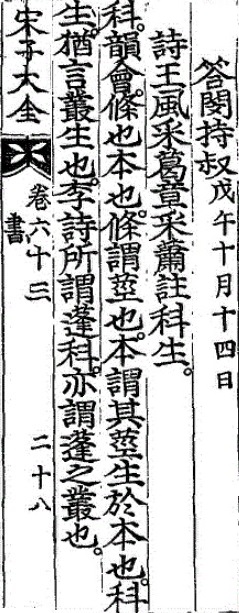 答閔持叔戊午十月十四日
詩王風采葛章采蕭註科生。
科。韻會。條也本也。條謂莖也。本謂其莖生於本也。科
生。猶言叢生也。李詩所謂蓬科。亦謂蓬之叢也。
宋子大全 卷六十三 書 二十八